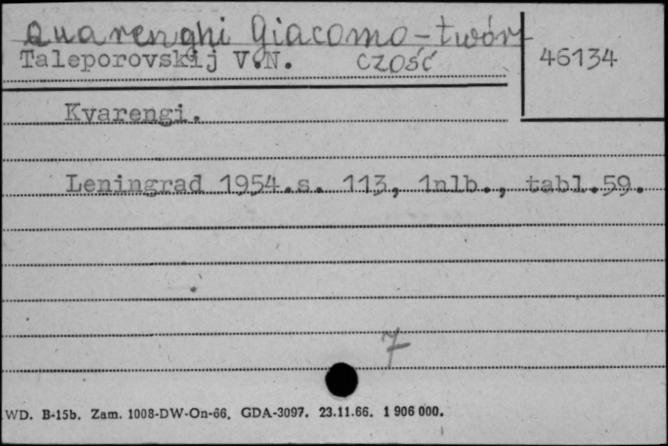 Quarenghi Giacomo - twór
czość
Taleporovskij V.N.
46134
Kvarengi.
Leningrad 1954.s. 113, 1nlb., tabl.59.
7
WD. B-15b. Zam. 1008-DW-On-66. GDA-3097. 23.11.66. 1 906 000.